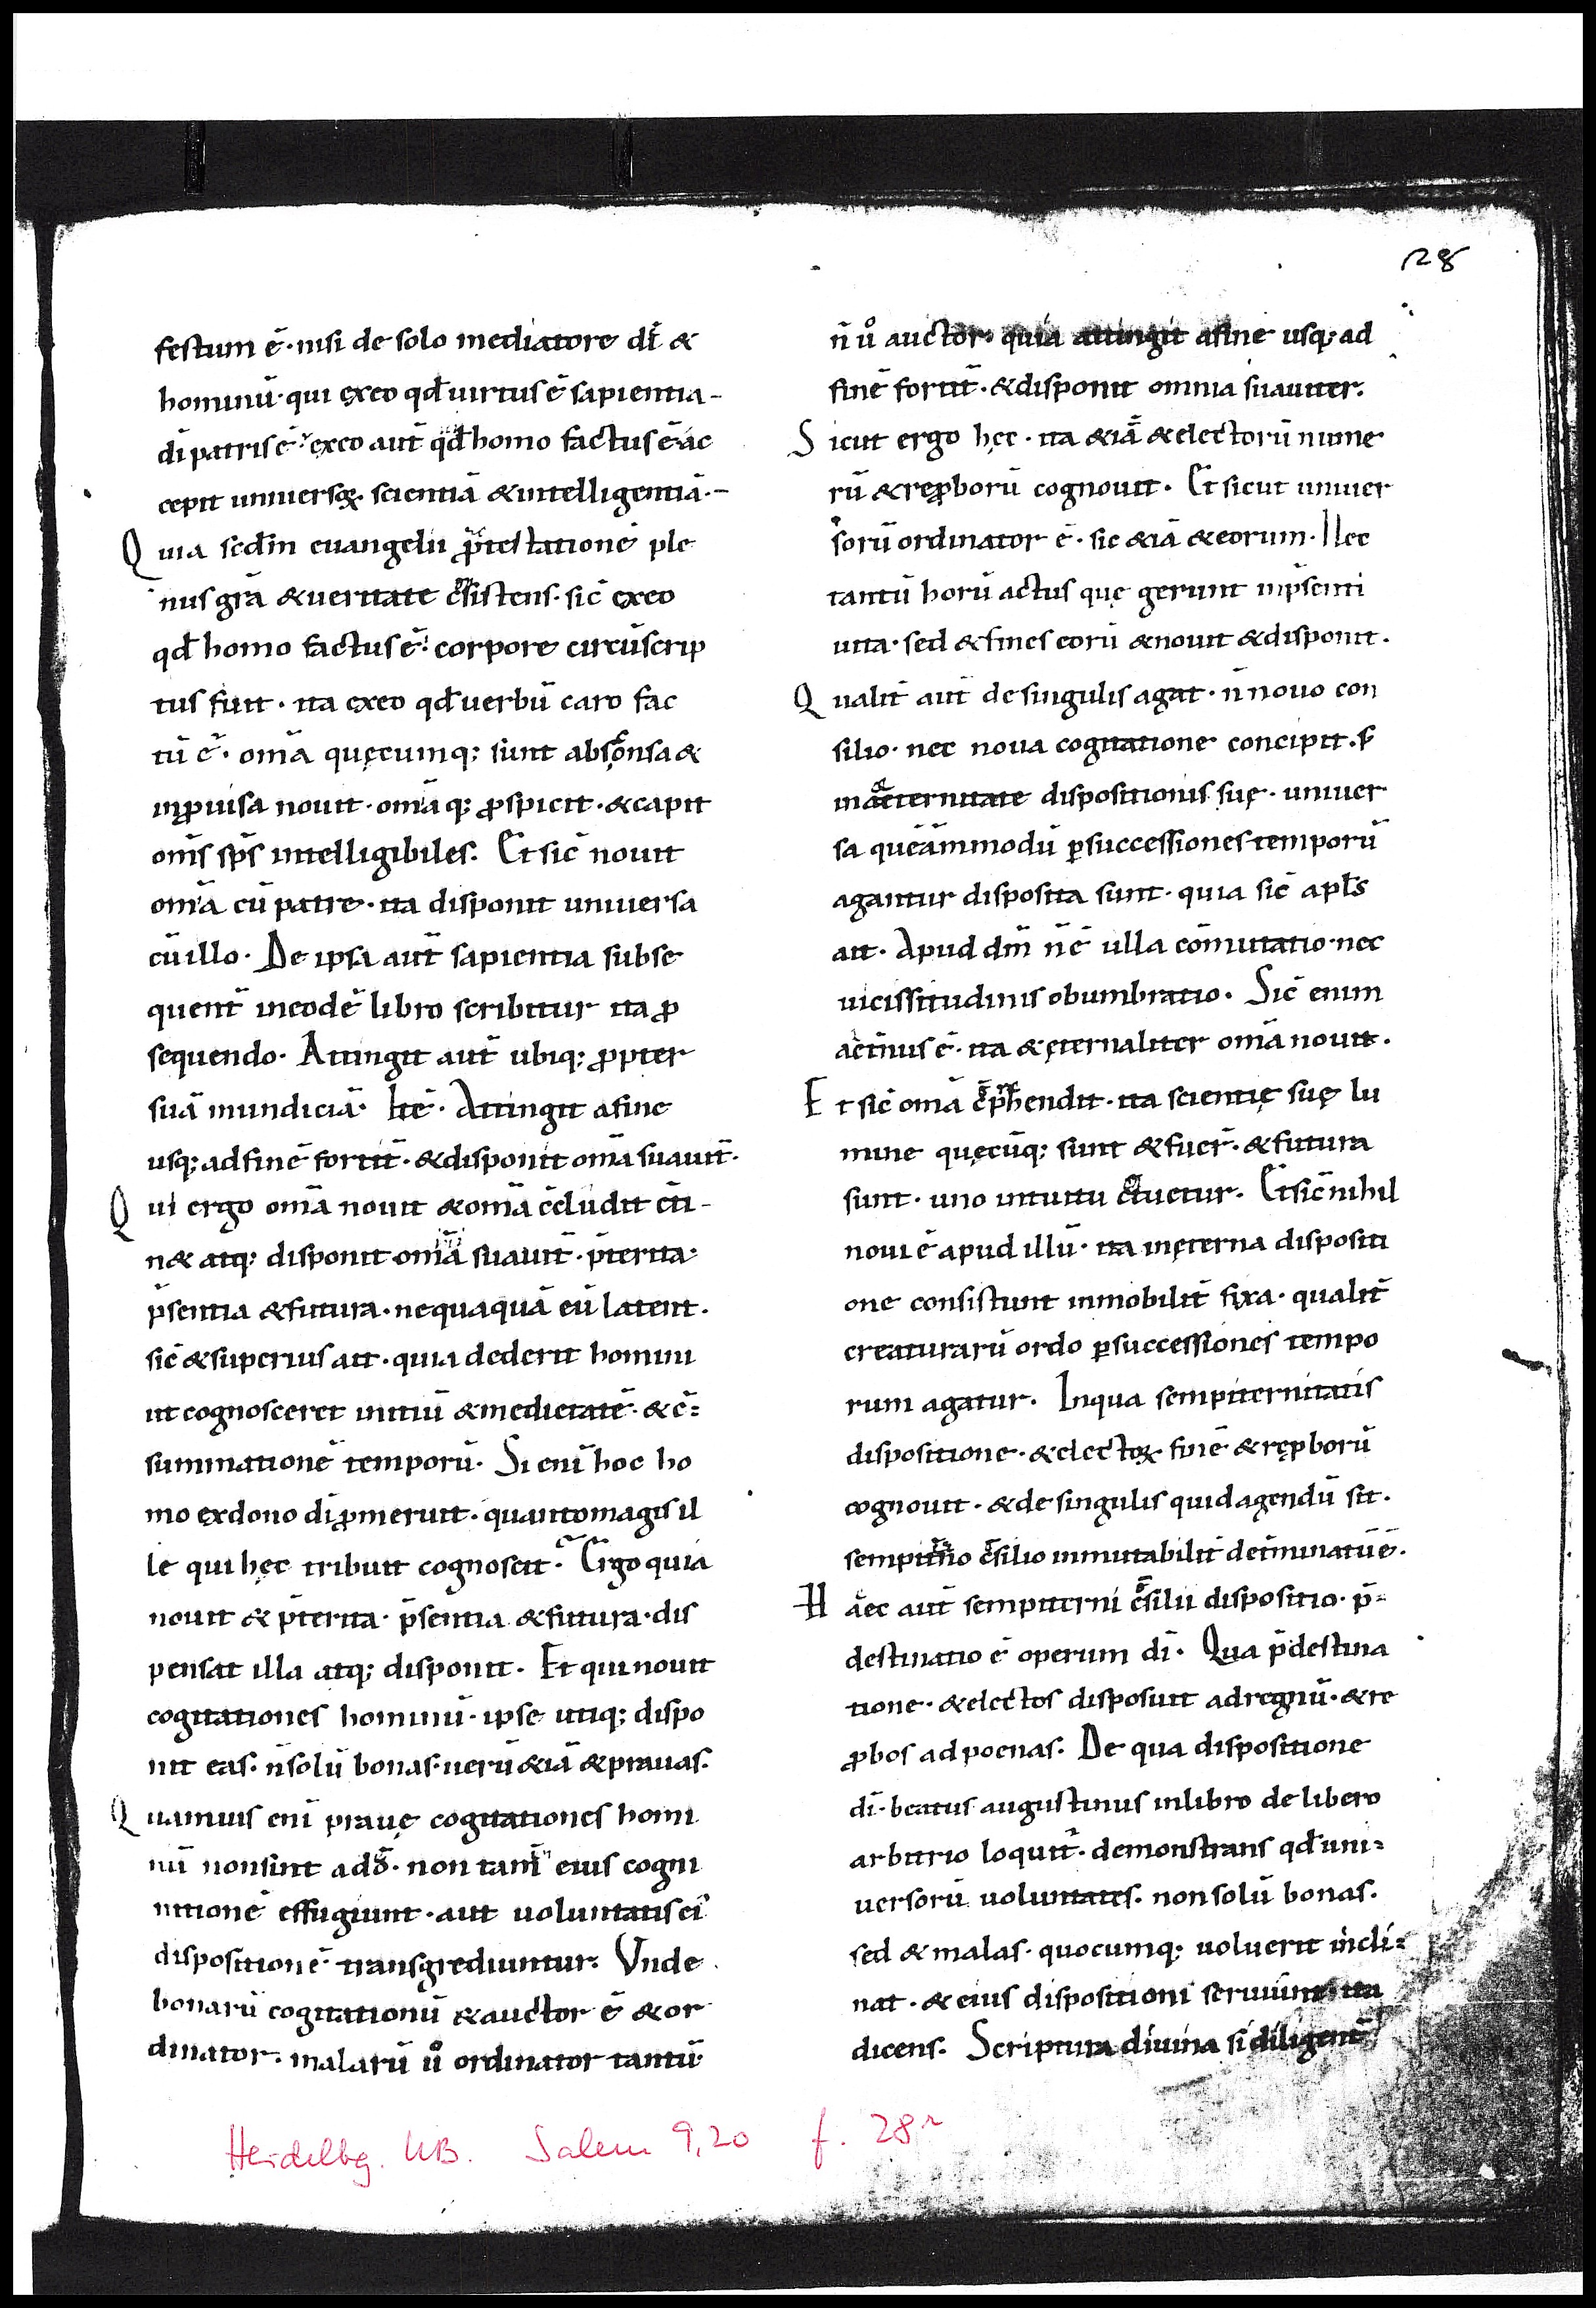 28
festum ē· nisi de solo mediatore dī &
hominū· qui exeo qd̄ uirtus ē sapientia-
dī patris ē· exeo aut̄ qd̄ homo factus ē ac
cepit uniuersoꝝ· scientiā & intelligentiā·-
Quia scd̄m euangelii ꝓtestationē ple
nus grā & ueritate c̄sistens· sic̄ exeo
qd̄ homo factus ē· corpore circūscrip
tus fuit· ita exeo qd̄ uerbū caro fac
tū ē· om̄a quęcumq; sunt absconsa &
inꝓuisa nouit· om̄a q; ꝓspicit· & capit
om̄s sp̄s intelligibiles. Et sic̄ nouit
om̄a cū patre· ita disponit uniuersa
cū illo· De ipsa aut̄ sapientia subse
quent̄ in eodē libro scribitur ita ꝓ
sequendo· Attingit aut̄ ubiq; ꝓpter
suā mundiciā· Itē· Attingit afine
usq; ad finē fortit̄· & disponit om̄a suauit̄·
Qui ergo om̄a nouit & om̄a c̄cludit c̄ti-
n& atq; disponit om̄a suauit̄· p̄terita·
p̄sentia & futura· nequaquā eū latent·
sic̄ & superius ait· quia dederit homini
ut cognosceret initiū & medietatē· & c̄=
summationē temporū· Si enī hoc ho
mo ex dono dī ꝓmeruit· quanto magis il
le qui hęc tribuit cognoscit· Ergo quia
nouit & p̄terita· p̄sentia & futura· dis
pensat illa atq; disponit· Et qui nouit
cogitationes hominū· ipse utiq; dispo
nit eas· n̄ solū bonas· uerū &iā & prauas.
Quamuis enī prauę cogitationes homi
nū non sint a dō· non tam̄ eius cogni
nitionē effugiunt· aut uoluntatis ei
dispositionē transgrediuntur. Vnde
bonarū cogitationū & auctor ē & or
dinator· malarū ů ordinator tantū·
n̄ ů auctor· quia attingit afine usq; ad
finē fortit̄· & disponit omnia suauiter.
Sicut ergo hęc· ita &iā & electorū nume
rū & reꝓborū cognouit· Et sicut uniuer
sorū ordinator ē· sic &iā & eorum· Nec
tantū horū actus quę gerunt in p̄senti
uita· sed & fines eorū & nouit & disponit.
Qualit̄ aut̄ de singulis agat· n̄ nouo con
silio· nec noua cogitatione concipit· s̄
in aeternitate dispositionis suę· uniuer
sa queāmmodū ꝑ successiones temporū
agantur disposita sunt· quia sic̄ apl̄s
ait· Apud dm̄ n̄ ē ulla cōmutatio· nec
uicissitudinis obumbratio· Sic̄ enim
aet̄nus ē· ita & ęternaliter om̄a nouit.
Et sic̄ om̄a c̄p̄hendit· ita scientię suę lu
mine quęcūq; sunt & fuer̄· & futura
sunt· uno intuitu c̄tuetur. Et sic̄ nihil
noui ē apud illū· ita in ęterna dispositi
one consistunt inmobilit̄ fixa· qualit̄
creaturarū ordo ꝑ successiones tempo
rum agatur. In qua sempiternitatis
dispositione· & electoꝝ finē & reꝓborū
cognouit· & de singulis quid agendū sit·
sempit̄no c̄silio inmutabilit̄ det̄minatū ē.
Haec aut̄ sempiterni c̄silii dispositio· p̄=
destinatio ē operum dī· Qua p̄destina
tione· & electos disposuit ad regnū· & re
ꝓbos ad poenas. De qua dispositione
dī· beatus augustinus in libro de libero
arbitrio loquit̄· demonstrans qd̄ uni=
uersorū uoluntates· non solū bonas·
sed & malas· quocumq; uoluerit incli=
nat· & eius dispositioni seruiunt· ita
dicens. Scriptura diuina si diligent̄
Heidelbg. UB. Salem 9,20 f. 28r